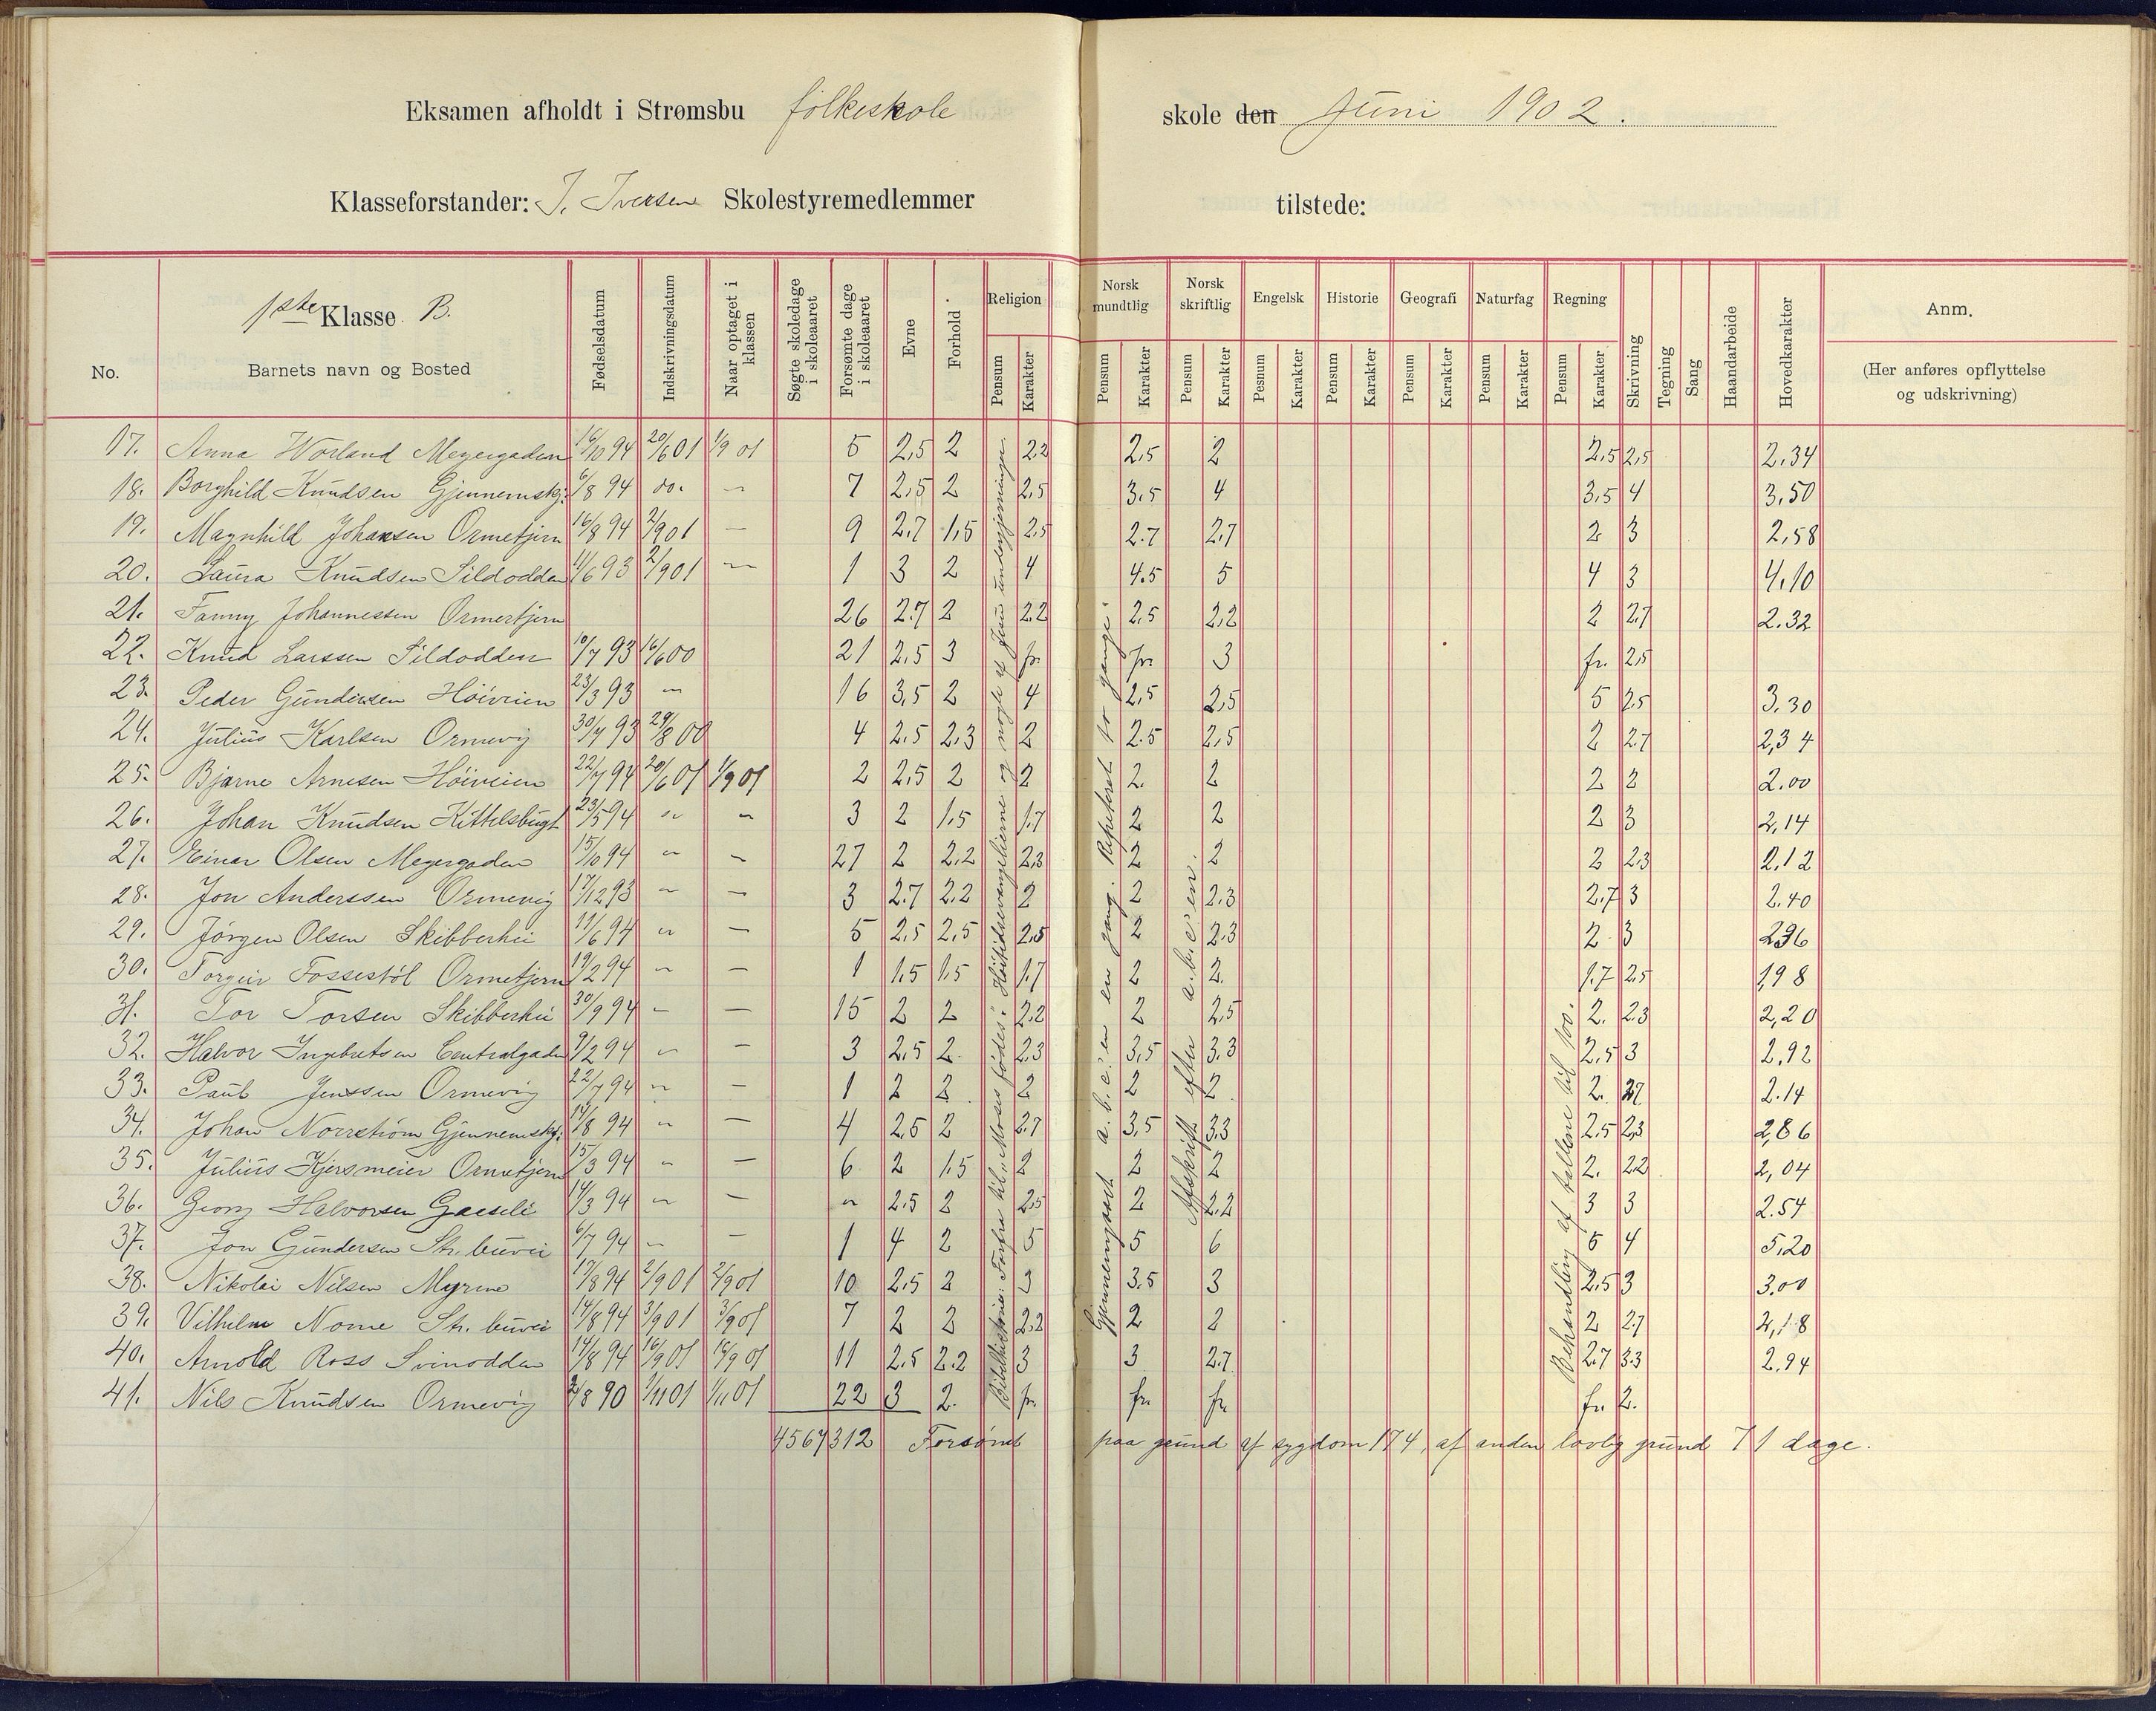 Eksamen afholdt i Strømsbu folkeskole skole den Juni 1902.
Klasseforstander: J. Iversen Skolestyremedlemmer tilstede:
1ste Klasse B.
No. Barnets navn og Bosted Fødselsdatum Indskrivningsdatum Naar optaget i klassen Søgte skoledage i skoleaaret Forsømte dage i skoleaaret Evne Forhold. Religion Pensum Karakter Norsk mundtlig Pensum Karakter Norsk skriftlig Pensum Karakter Engelsk Pesnum Karakter Historie Pensum Karakter Geografi Pensum Karakter Naturfag Pensum Karakter Regning Pensum Karakter Skrivning Tegning Sang Haandarbeide Hovedkarakter Anm. (Her anføres opflyttelse og udskrivning)
17. Anna Worland Meyergaden 16/10 94 20/6 01 1/9 01 5 2,5 2 2,2 2,5 2 2,5 2,5 2,34
18. Borghild Knudsen Gjennemskj: 6/8 94 do. — 7 2,5 2 2,5 3,5 4 3,5 4 3,50
19. Magnhild Johansen Ormetjern 16/8 94 2/9 01 — 9 2,7 1,5 2,5 2.7 2,7 2 3 2,58
20. Laura Knudsen Sildodden 11/6 93 2/9 01 — 1 3 2 4 4.5 5 4 3 4,10
21. Fanny Johannessen Ormertjern 26 2.7 2 2,2 2,5 2,2 2 2,7 2.32
22. Knud Larssen Sildodden 10/7 93 16/6 00 21 2,5 3 fr. fr. 3 fr. 2,5
23. Peder Gundersen Höiveien 23/3 93 — 16 3,5 2 4 2,5 2,5 5 2,5 3,30
24. Julius Karlsen Ormevig 30/7 93 29/8 00 4 2.5 2,3 2 2.5 2,5 2 2.7 2,34
25. Bjarne Arnesen Höiveien 22/7 94 20/6 01 1/9 01 2 2,5 2 2 2. 2 2 2 2.00
26. Johan Knudsen Kittelsbugt 23/5 94 — — 3 2 1,5 1.7 2 2 2 3 2,14
27. Einar Olsen Meyergaden 15/10 94 — — 27 2 2,2 2,3 2 2 2 2,3 2,12
28. Jon Anderssen Ormevig 17/12 93 — — 3 2.7 2,2 2 2 2,3 2.7 3 2.40
29. Jörgen Olsen Skibberhei 11/6 94 — — 5 2,5 2,5 2,5 2 2,3 2 3 2,36
30. Torgeir Fossestöl Ormetjern 19/2 94 — — 1 1,5 1,5 1,7 2 2. 1.7 2,5 1,98
31. Tor Torsen Skibberhei 30/9 94 — — 15 2 2 2,2 2 2,5 2. 2.3 2,20
32. Halvor Ingebretsen Centralgaden 9/2 94 — — 3 2,5 2 2,3 3,5 3.3 2,5 3 2,92
33. Paul Jenssen Ormevig 22/7 94 — — 1 2 2 2 2 2 2. 2,7 2.14
34. Johan Norrström Gjennemskj: 14/8 94 — — 4 2,5 2 2.7 3,5 3.3 2,5 2,3 2,86
35. Julius Kjersmeier Ormetjern 15/3 94 — — 6 2 1.5 2 2 2 2. 2,2 2,04
36. Georg Halvorsen Gaseli 14/3 94 — — — 2.5 2 2,5 2 2,2 3 3 2.54
37. Jon Gundersen Str. buvei 6/7 94 — — 1 4 2 5 5 6 6 4 5,20
38. Nikolai Nilsen Myrene 17/8 94 2/9 01 2/9 01 10 2.5 2 3 3.5 3 2.5 3 3.00
39. Vilhelm Nome Str. buvei 14/8 94 3/9 01 3/9 01 7 2 2 2,2 2 2 2 2.7 2,18
40. Arnold Ross Svinodden 14/8 94 16/9 01 16/9 01 11 2.5 2.2 3 3 2.7 2.7 3.3 2.94
41. Nils Knudsen Ormevig 2/8 90 1/11 01 1/11 01 22 3 2. fr. fr. fr. fr. 2.
4567 312 Forsömt paa grund af sygdom 174, af anden lovlig grund 71 dage.
Bibelhistorie: Forfra til "Moses fødes". Høitidsevangelierne og nogle af Jesu undergjerninger.
Gjennemgaaet a.b.c.'en en gang. Repeteret to gange.
Afskrift efter a.b.c'en.
Behandling af tallene til 100.